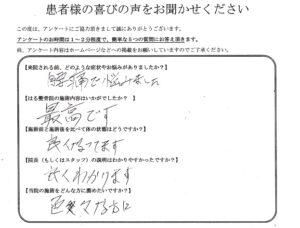 患者様の喜びの声をお聞かせください
この度は、アンケートにご協力頂きまして誠にありがとうございます。
アンケートのお時間は1～2分程度で、簡単な5つの質問にお答え頂きます。
尚、アンケート内容はホームページなどへの掲載をお願いしていますのでご了承ください。
【来院される前、どのような症状やお悩みがありましたか?】
腰痛で悩みました
【はる整骨院の施術内容はいかがでしたか?】
最高です
【施術前と施術後を比べて体の状態はどうですか?】
良くなってます
【院長(もしくはスタッフ)の説明はわかりやすかったですか?】
よくわかります
【当院の施術をどんな方に薦めたいですか?】
色々な方に